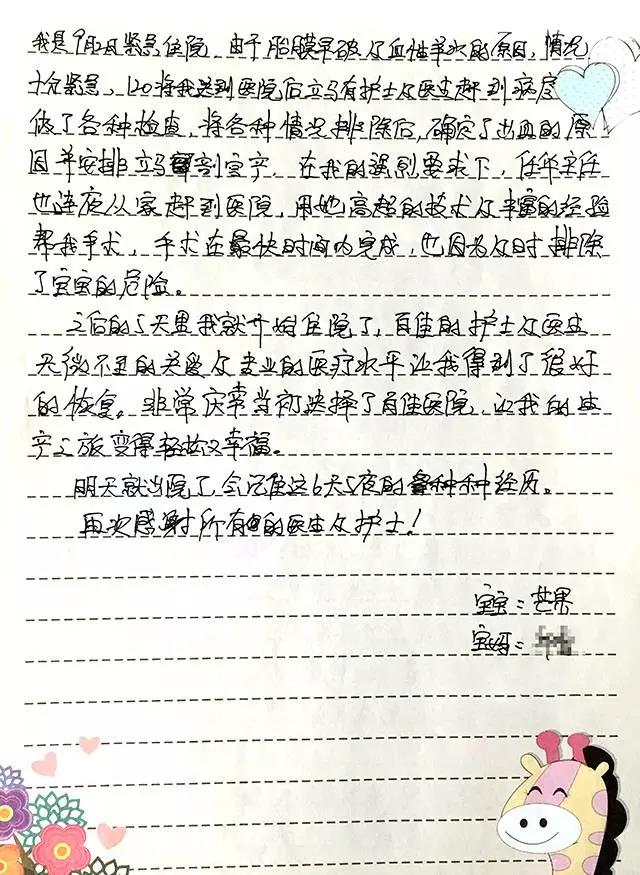 我是9月2日紧急住院,由于胎膜早破及血性羊水的原因,情况
十分紧急,120将我送到医院后立马有护士及医生赶到病房
做了各种检查,将各种情况排除后,确定了出血的原
因并安排立马剖宫产。在我的强烈要求下,任华主任
也连夜从家赶到医院,用她高超的技术及丰富的经验
帮我手术,手术在最快时间内完成,也因为及时排除
了宝宝的危险。
之后的5天里我就开始住院了,百佳的护士及医生
无微不至的关爱及专业的医疗水平让我得到了很好
的恢复。非常庆幸当初选择了百佳医院,让我的生
产之旅变得轻松又幸福。
明天就出院了,会记住这6天5夜的种种经历。
再次感谢所有的医生及护士!
宝宝:芒果
宝妈: